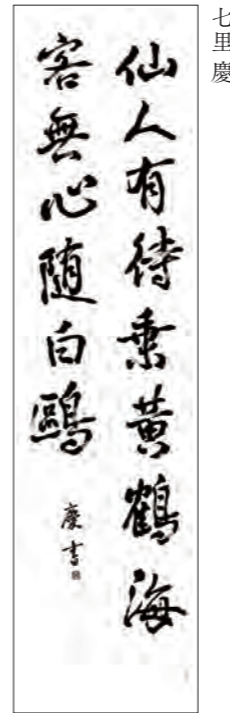 七里慶
仙人有待乗黄鶴海
客無心随白鷗
慶書